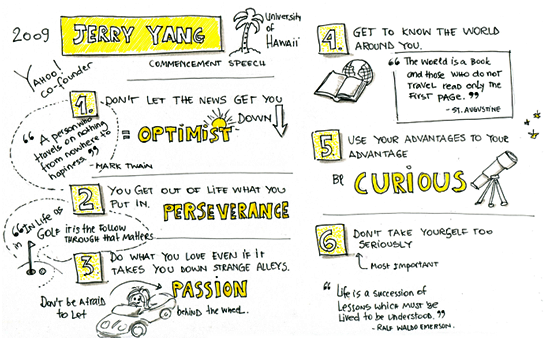 2009
JERRY YANG
University
of
Hawaii
Yahoo!
co-founder
COMMENCEMENT SPEECH
1. DON'T LET THE NEWS GET YOU
DOWN
= OPTIMIST
"A person who
travels on nothing
from nowhere to
hapiness"
- MARK TWAIN
2 YOU GET OUT OF LIFE WHAT YOU
PUT IN.
PERSEVERANCE
"In Life as
in Golf it is the follow
THROUGH that matters"
3 DO WHAT YOU LOVE EVEN IF IT
TAKES YOU DOWN STRANGE ALLEYS.
PASSION
Don't be Afraid
to Let
behind the wheel..
4. GET TO KNOW THE WORLD
AROUND YOU.
"The World is a Book
and those who do not
travel read only the
first page."
- ST. AUGUSTINE
5 USE YOUR ADVANTAGES TO YOUR
ADVANTAGE
BE CURIOUS
6 DON'T TAKE YOURSELF TOO
SERIOUSLY
Most Important
"Life is a succession of
Lessons which must be
Lived to be understood."
- RALF WALDO EMERSON.